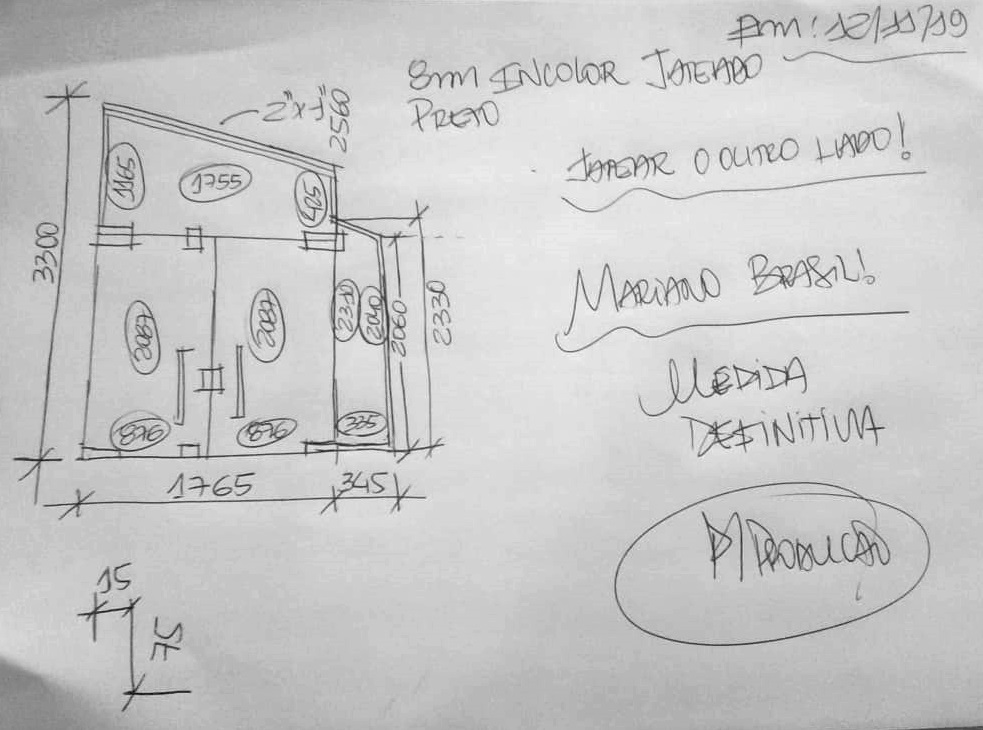 Em: 12/11/19
8mm INCOLOR JATEADO
PRETO
JATEAR O OUTRO LADO!
MARIANO BRASIL!
MEDIDA
DEFINITIVA
P/PRODUCAO
2"x1"
2560
1165
1755
425
3300
2087
2087
2310
2040
2060
2330
876
876
335
1765
345
15
75